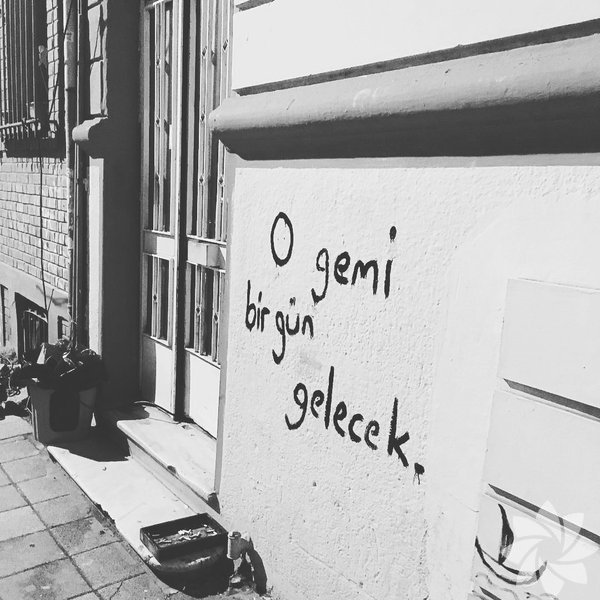 O gemi
bir gün
gelecek.